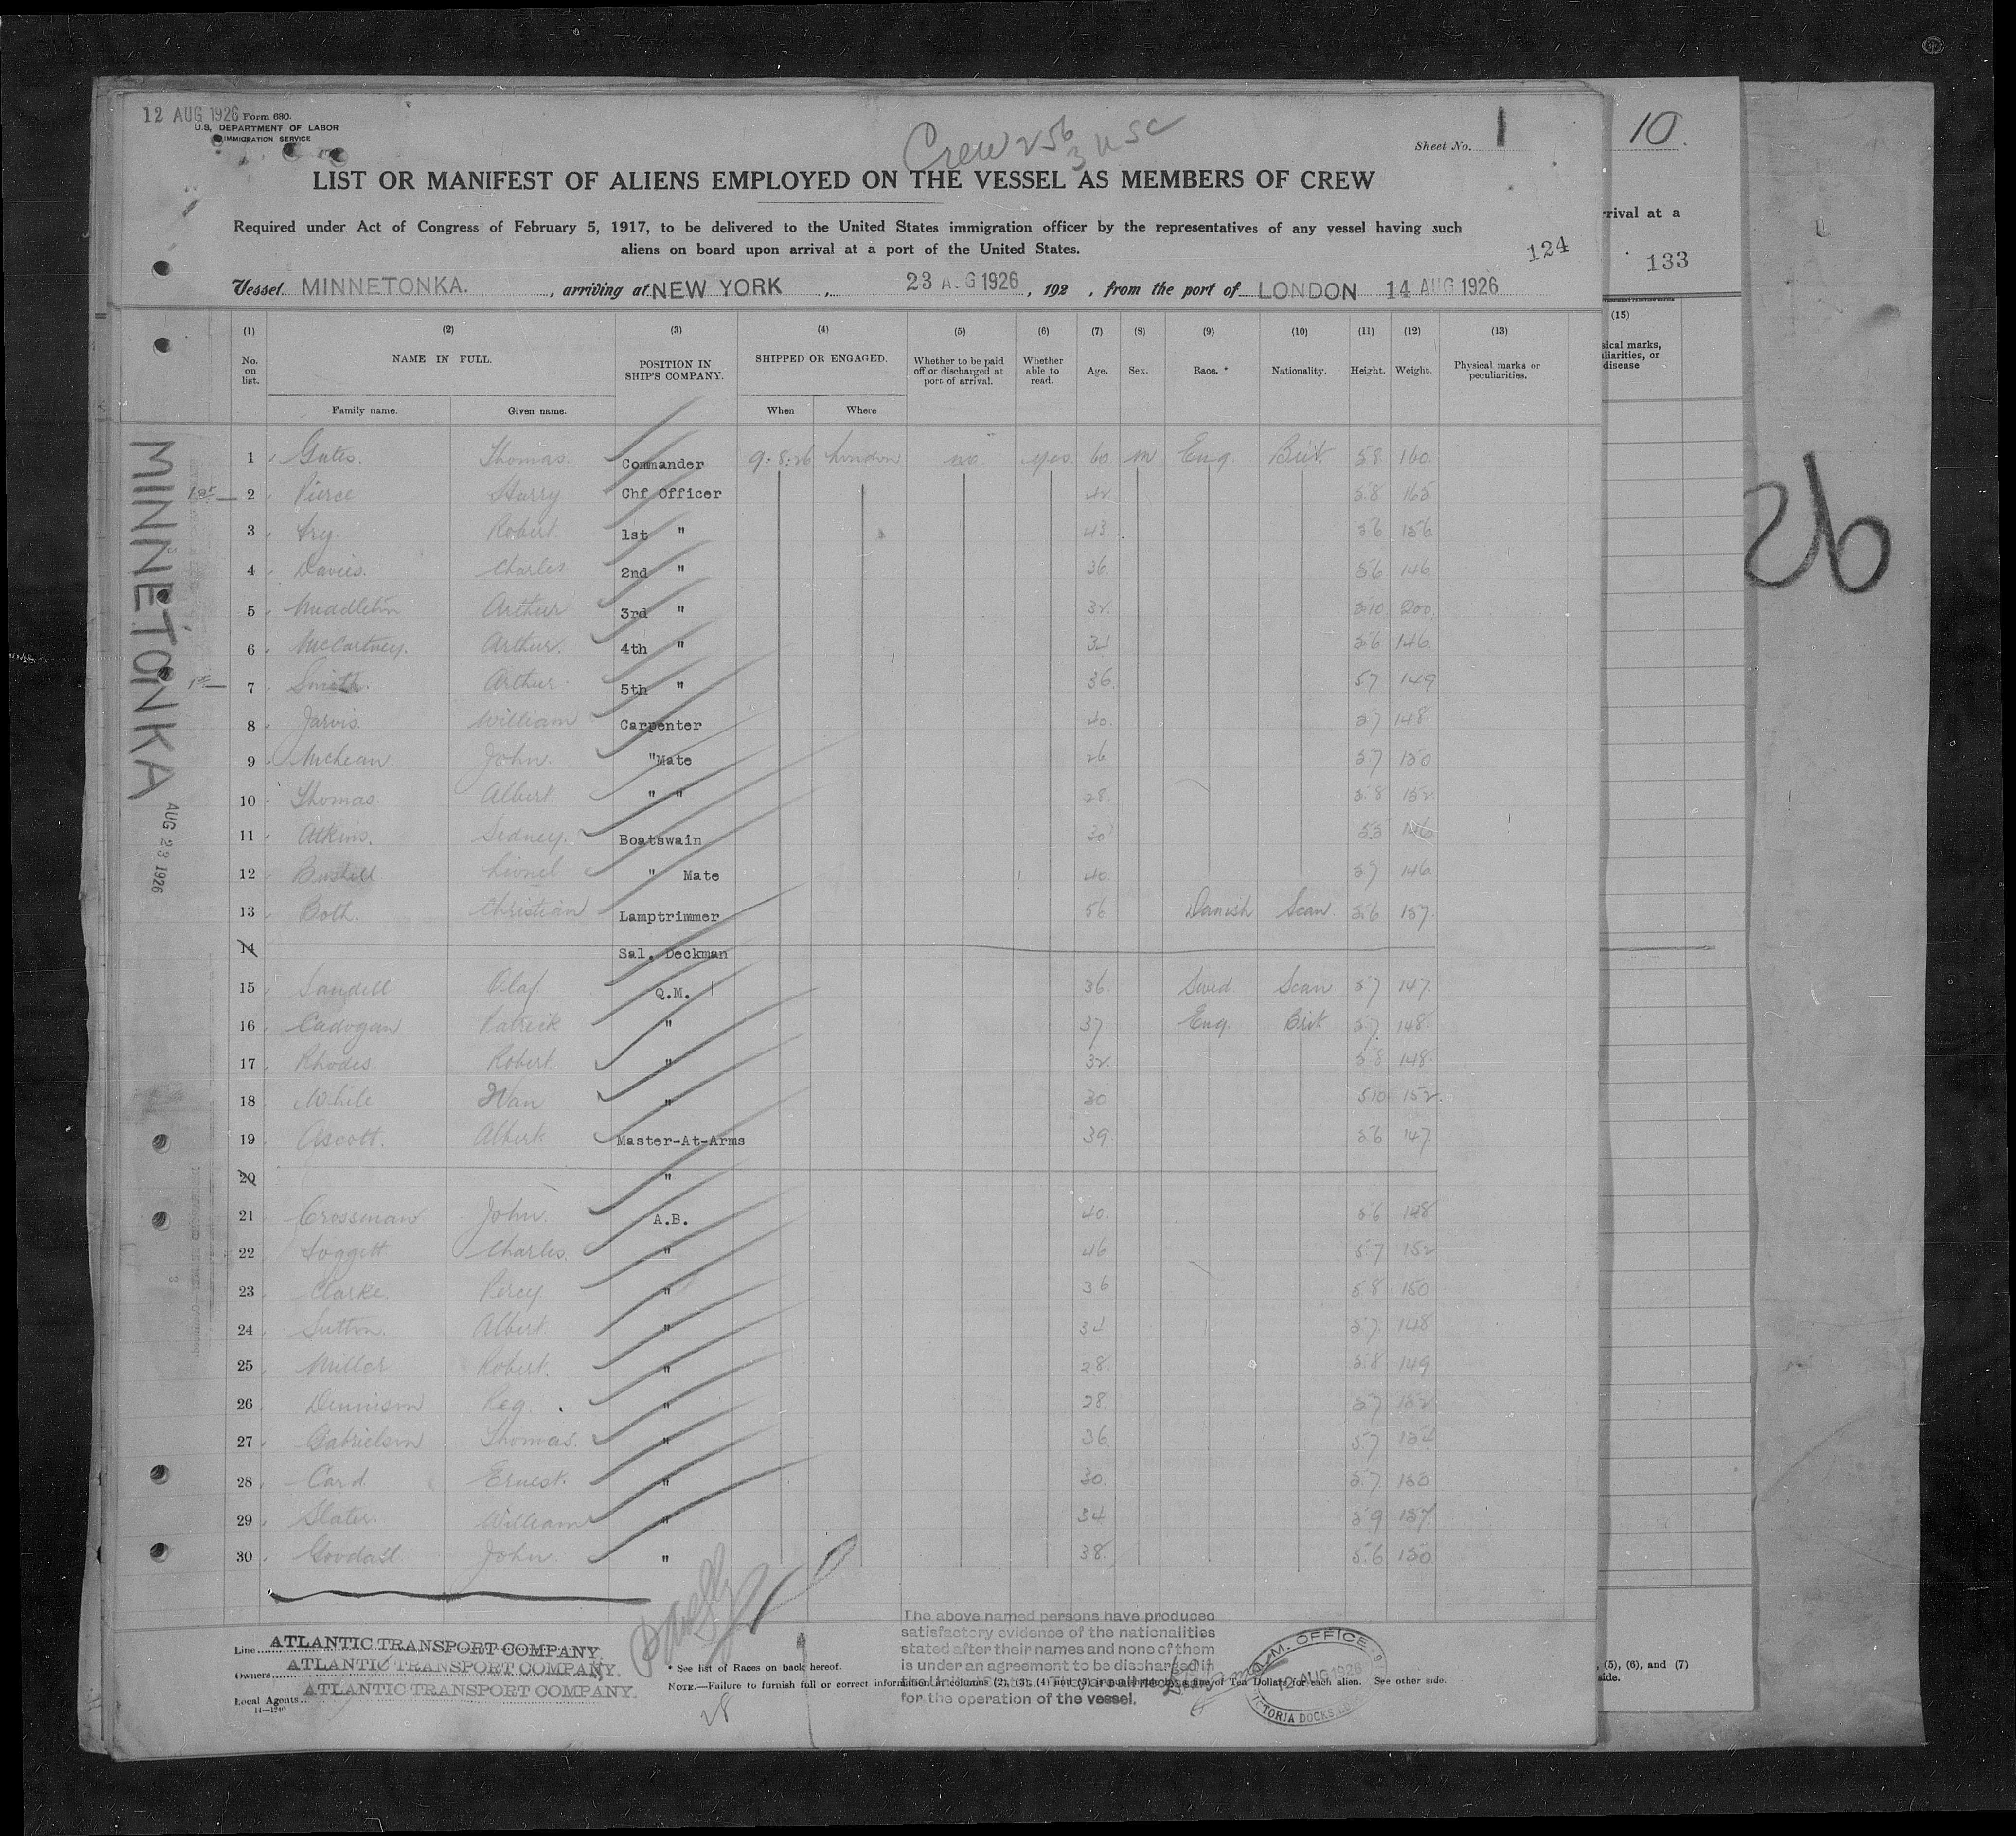 12 AUG 1926 Form 680.
U.S. DEPARTMENT OF LABOR
IMMIGRATION SERVICE
Crew 256
3 USC
Sheet No. 1
10.
LIST OR MANIFEST OF ALIENS EMPLOYED ON THE VESSEL AS MEMBERS OF CREW
Required under Act of Congress of February 5, 1917, to be delivered to the United States immigration officer by the representatives of any vessel having such
aliens on board upon arrival at a port of the United States.
124
rrival at a
133
Vessel MINNETONKA. , arriving at NEW YORK , 23 AUG 1926 , 192 , from the port of LONDON 14 AUG 1926
(1) (2) (3) (4) (5) (6) (7) (8) (9) (10) (11) (12) (13) (15)
No. on list. NAME IN FULL. POSITION IN SHIP'S COMPANY. SHIPPED OR ENGAGED. Whether to be paid off or discharged at port of arrival. Whether able to read. Age. Sex. Race. * Nationality. Height. Weight. Physical marks or peculiarities.
sical marks,
liarities, or
disease
Family name. Given name. When Where
1 Gates. Thomas. Commander 9:8:26 London no. yes 60. m Eng. Brit. 5 8 160.
1st 2 Pierce Harry Chf Officer 42 5.8 165
3 Robert. 1st " 43 5 6 156
4 Davies. Charles 2nd " 36. 5 6 146
5 Middleton Arthur 3rd " 32. 5.10 200
6 McCartney. Arthur. 4th " 34 5.6 146.
7 Smith. Arthur. 5th " 36. 5 7 149
8 Jarvis. William Carpenter 40. 5.7 148.
9 McLean John. "Mate 26 5.7 150
10 Thomas. Albert. " " 28. 5.8 152
11 Atkins. Sidney. Boatswain 30 5.5 146
12 Bushell Lionel " Mate 40. 5.7 146
13 Both. Christian Lamptrimmer 56. Danish Scan 5.6 157.
14 Sal. Deckman
15 Sandell Olaf. Q.M. 36. Swed. Scan 5 7 147.
16 Cadogan Patrick " 37. Eng. Brit 5.7. 148.
17 Rhodes. Robert. " 32. 5.8 148.
18 White Ivan " 30 5.10 152.
19 Ascott. Albert. Master-At-Arms 39. 5 6 147.
20 "
21 Crossman John. A.B. 40. 5 6 148
22 Charles. " 46 5.7 152
23 Clarke. Percy " 36 5.8 150
24 Sutton. Albert. " 34 5.7. 148
25 Miller Robert. " 28 5.8 149
26 Dennison Reg. " 28. 5.7 152
27 Gabrielson Thomas. " 36. 5 7 154
28 Card. Ernest. " 30. 5.7. 150
29 Slater. William " 34 5 9 157.
30 Goodall John. " 38. 5.6 150
MINNETONKA
AUG 23 1926
26
Line ATLANTIC TRANSPORT COMPANY.
Owners ATLANTIC TRANSPORT COMPANY.
Local Agents ATLANTIC TRANSPORT COMPANY.
14—1240
28
The above named persons have produced
satisfactory evidence of the nationalities
stated after their names and none of them
is under an agreement to be discharged in
for the operation of the vessel.
* See list of Races on back hereof.
NOTE.—Failure to furnish full or correct information in columns (2), (3), (4) and (5) is punishable by a fine of Ten Dollars for each alien. See other side.
M.M. OFFICE
12 AUG 1926
VICTORIA DOCKS
, (5), (6), and (7)
side.